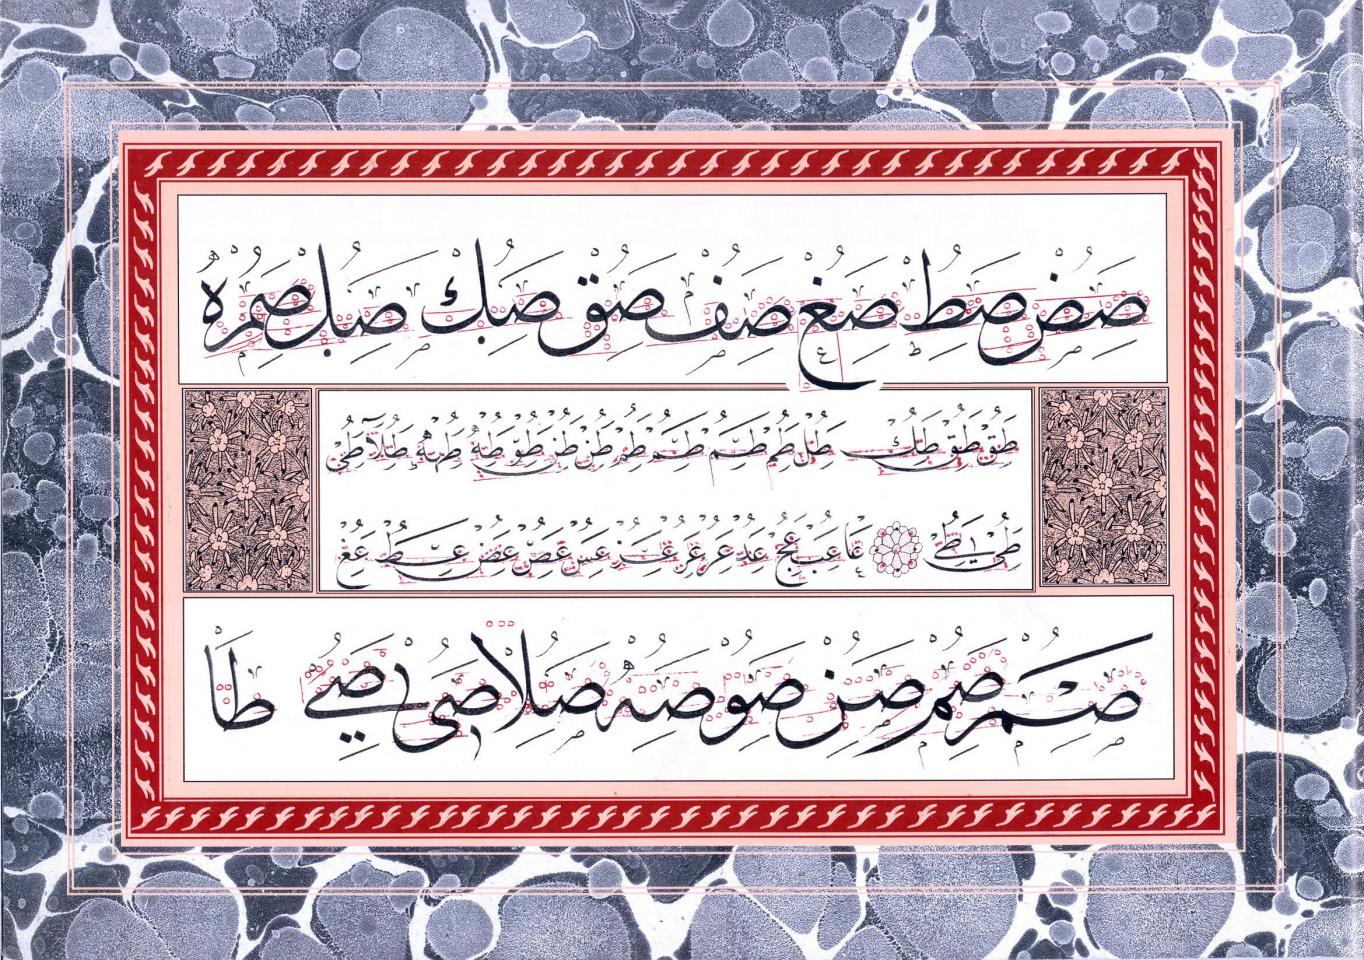 صض صط صغ صف صق صك صل صم
طق طق طك طل طم طم طم طم طن طن طو طه طه طلا طى
طى طى عا عب عج عد عر عر عر عس عص عض عط عغ
صم صم صن صو صه صلا صى صى طا